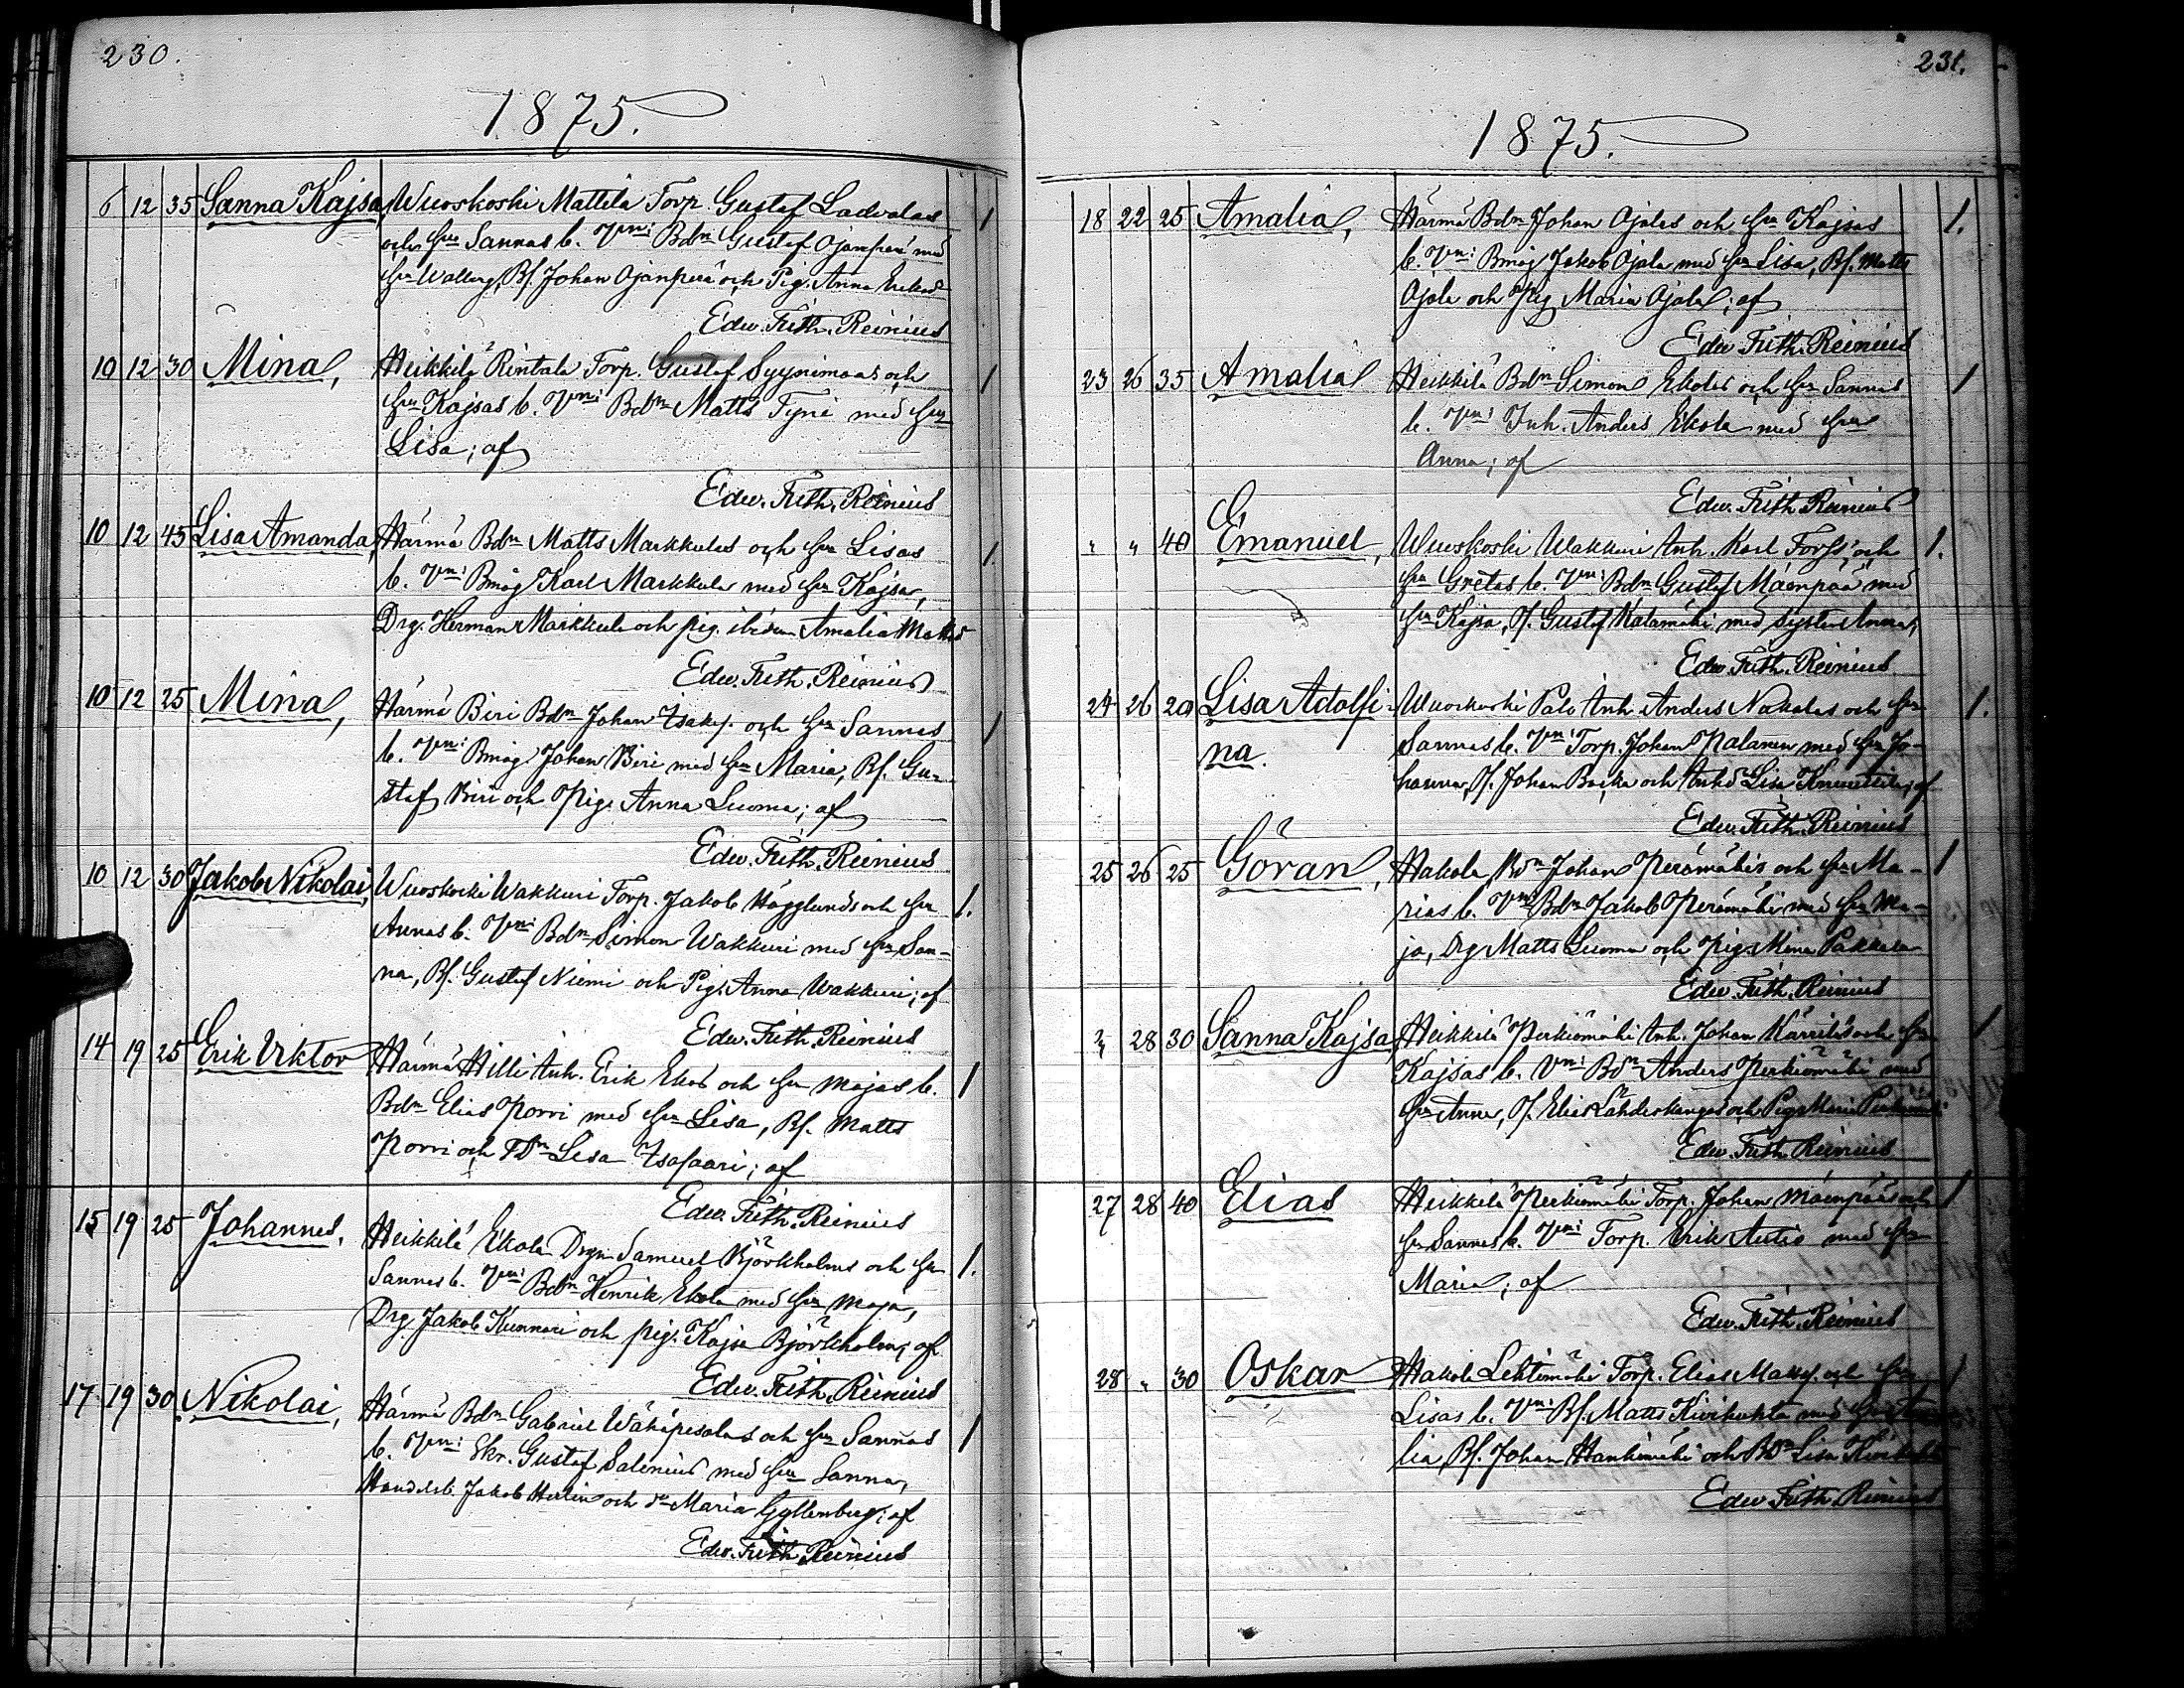 230.
1875.
6 12 35 Sanna Kajsa, Wuoskoski Mattila Torp. Gustaf Ladvalas 1
och Hu Sannas b. Vni: Bdn Gustaf Ojanperä med
Hu Walborg, Bs. Johan Ojanperä och Pig. Anna
Edw. Frith. Reinius
10 12 30 Mina, Heikkilä Rintala Torp. Gustaf Syynimaas och 1
Hu Kajsas b. Vni: Bdn Matts Tyni med Hu
Lisa; af
Edw. Frith. Reinius
10 12 45 Lisa Amanda, Härmä Bdn Matts Markkulas och Hu Lisas 1.
b. Vni: Bmåg Karl Markkula med Hu Kajsa,
Drg. Herman Markkula och pig. ibidem Amalia Mattsd
Edw. Frith. Reinius
10 12 25 Mina, Härmä Biri Bdn Johan Isaks. och Hu Sannas 1
b. Vni: Bmåg Johan Biri med Hu Maria, Bs. Gu-
staf Biri och Pig. Anna Luoma; af
Edw. Frith. Reinius
10 12 30 Jakob Nikolai, Wuoskoski Wakkuri Torp. Jakob Hägglunds och Hu 1.
Annas b. Vni: Bdn Simon Wakkuri med Hu San-
na, Bs. Gustaf Niemi och Pig. Anna Wakkuri; af
Edw. Frith. Reinius
14 19 25 Erik Viktor Härmä Hilli Inh. Erik Ekos och Hu Majas b. 1
Bdn Elias Porri med Hu Lisa, Bs. Matts
Porri och Lisa Isosaari; af
Edw. Frith. Reinius
15 19 25 Johannes, Heikkilä Ekola Drgn Samuel Björkholms och Hu 1.
Sannas b. Vni: Bdn Henrik Ekola med Hu Maja,
Drg. Jakob Kunnari och pig. Kajsa Björkholm; af
Edw. Frith. Reinius
17 19 30 Nikolai, Härmä Bdn Gabriel Wähäpesolas och Hu Sannas 1
b. Vni: Skr. Gustaf Salenius med Hu Sanna,
Handelsb. Jakob Herlin och Maria Gyllenberg; af
Edw. Frith. Reinius
231.
1875.
18 22 25 Amalia, Härmä Bdn Johan Ojalas och Hu Kajsas 1.
b. Vni: Bmåg Jakob Ojala med Hu Lisa, Bs. Matts
Ojala och Pig. Maria Ojala; af
Edw. Frith. Reinius
23 26 35 Amalia Heikkilä Bdn Simon Ekolas och Hu Sannas 1
b. Vni: Inh. Anders Ekola med Hu
Anna; af
Edw. Frith. Reinius
" " 40 Emanuel, Wuoskoski Wakkuri Inh. Karl Forss' och 1.
Hu Gretas b. Vni: Bdn Gustaf Mäenpää med
Hu Kajsa, J. Gustaf Katamäki med syster Anna,
Edw. Frith. Reinius
24 26 20 Lisa Adolfi- Wuoskoski Palo Inh. Anders Nokalas och Hu 1.
na. Sannas b. Vni: Torp. Johan Palanen med Hu Jo-
hanna, J. Johan Backa och Inhd Lisa Knuuttila; af
Edw. Frith. Reinius
25 26 25 Göran, Hakola Bdn Johan Perämäkis och Hu Ma- 1
rias b. Vni: Bdn Jakob Perämäki med Hu Ma-
ja, Drg Matts Luoma och pig. Mina Pakkala
Edw. Frith. Reinius
" 28 30 Sanna Kajsa, Heikkilä Perkiömäki Inh. Johan Kärriläs och Hu 1
Kajsas b. Vni: Bdn Anders Perkiömäki med
Hu Anna, J. Elias Lähdeskangas och Pig Maria Perkiömäki
Edw. Frith. Reinius
27 28 40 Elias Heikkilä Perkiömäki Torp. Johan Mäenpääs och 1
Hu Sannas b. Vni: Torp. Erik Autio med Hu
Maria; af
Edw. Frith. Reinius
28 " 30 Oskar Hakola Lehtimäki Torp. Elias Matts. och Hu 1
Lisas b. Vni: Bs. Matts Kivihuhta med Hu
lia, Bs. Johan Hanhimäki och Lisa
Edw. Frith. Reinius